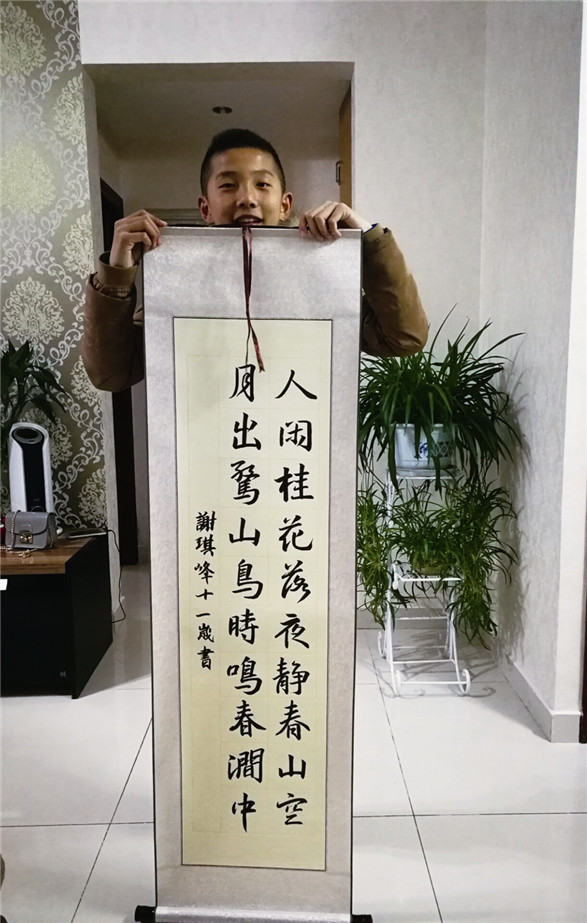 人闲桂花落夜静春山空
月出驚山鳥時鳴春澗中
謝琪峰十一歲書